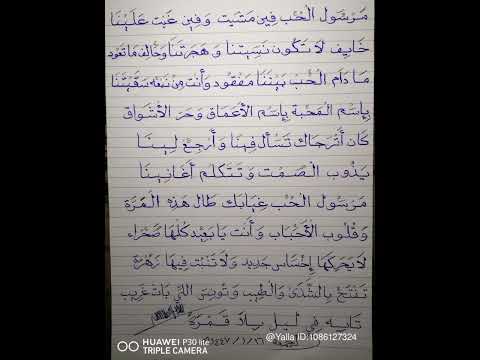 مَرسُول الحُب فِين مَشَيت وفِين غَبت عَلَينَا
خَايِف لَا تَكُون نَسِيتنَا وهَجَرتنَا وحَالِف مَا تعُود
مَا دَام الحُب بَيننَا مَفقُود وأَنت مِن نَبعَه سَقَيتنَا
بِاسم المَحَبة بِاسم الأَعمَاق وحَر الأَشوَاق
كَان أَترَجاك تَسأَل فِينَا وأَرجِع لِينَا
يَذُوب الصَمت وتَتكَلم أَغَانِينَا
مَرسُول الحُب غِيَابَك طَال هَذه المَرَة
وقُلوب الأَحبَاب وأَنت يَا بَعِيد كُلهَا صَحرَاء
لَا يحَركهَا إِحسَاس جَدِيد ولَا تَنبُت فِيهَا زَهرَة
تَفتَح بِالشَذَى والطِيب وتوَنِس اللي بَات غَرِيب
تَايِه فِي لَيل بِلَا قَمَرَة
١٤٤٧/١/١٦
HUAWEI P30 lite
TRIPLE CAMERA
@Yalla ID:1086127324